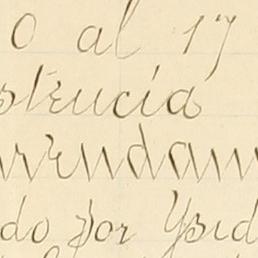 0 al 17
stencia
rrendam
do por Ysid